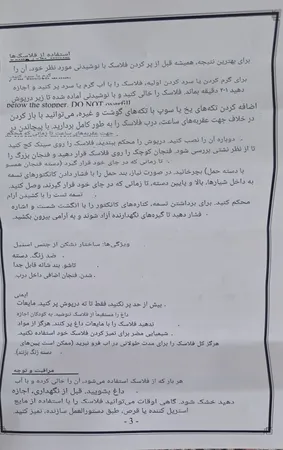 استفاده از فلاسک‌ها
برای بهترین نتیجه، همیشه قبل از پر کردن فلاسک با نوشیدنی مورد نظر خود، آن را
برای گرم کردن یا سرد کردن اولیه، فلاسک را با آب گرم یا سرد پر کنید و اجازه
دهید ۱-۲ دقیقه بماند. فلاسک را خالی کنید و با نوشیدنی آماده شده تا زیر درپوش
below the stopper. DO NOT
اضافه کردن تکه‌های یخ یا سوپ با تکه‌های گوشت و غیره، می‌توانید با باز کردن
در خلاف جهت عقربه‌های ساعت، درب فلاسک را به طور کامل بردارید. با پیچاندن در
دوباره آن را نصب کنید. درپوش را محکم ببندید، فلاسک را روی سینک کج کنید
تا از نظر نشتی بررسی شود. فنجان کوچک را روی فلاسک قرار دهید و فنجان بزرگ را
تا زمانی که در جای خود قرار گیرد، (بسته فنجان همسو
با دسته حمل) بچرخانید. در صورت نیاز، بند حمل را با فشار دادن کانکتورهای تسمه
به داخل شیارها، بالا و پایین دسته، تا زمانی که در جای خود قرار گیرند، وصل کنید.
تسمه است را با کشیدن آرام
محکم کنید. برای برداشتن تسمه، کناره‌های کانکتور را با انگشت شست و اشاره
فشار دهید تا گیره‌های نگهدارنده آزاد شوند و به آرامی بیرون بکشید.
ویژگی‌ها: ساختار نشکن از جنس استیل
ضد زنگ. دسته
تاشو. بند شانه قابل جدا
شدن. فنجان اضافی داخل درب.
ایمنی
بیش از حد پر نکنید، فقط تا ته درپوش پر کنید. مایعات
داغ را مستقیماً از فلاسک ننوشید. به کودکان اجازه
ندهید فلاسک را با مایعات داغ پر کنند. هرگز از مواد
شیمیایی مضر برای تمیز کردن فلاسک خود استفاده نکنید.
هرگز کل فلاسک را برای مدت طولانی در آب فرو نبرید (ممکن است پین‌های
دسته زنگ بزنند).
مراقبت و توجه
هر بار که از فلاسک استفاده می‌شود، آن را خالی کرده و با آب
داغ بشویید. قبل از نگهداری، اجازه
دهید خشک شود. گاهی اوقات می‌توانید فلاسک را با استفاده از مایع
استریل کننده یا قرص، طبق دستورالعمل سازنده، تمیز کنید.
- 3 -